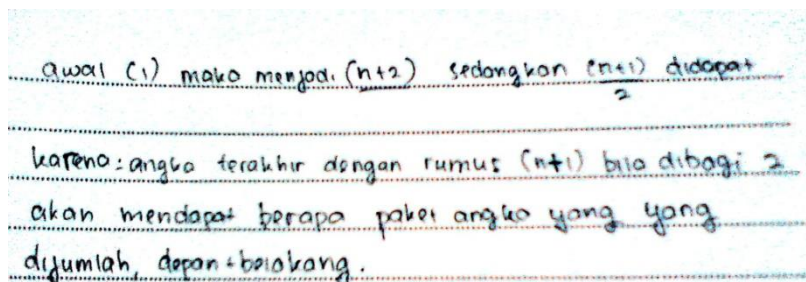 awal (1) maka menjadi (n+2) sedangkan (n+1)/2 didapat
karena : angka terakhir dengan rumus (n+1) bila dibagi 2
akan mendapat berapa paket angka yang yang
dijumlah, depan + belakang.